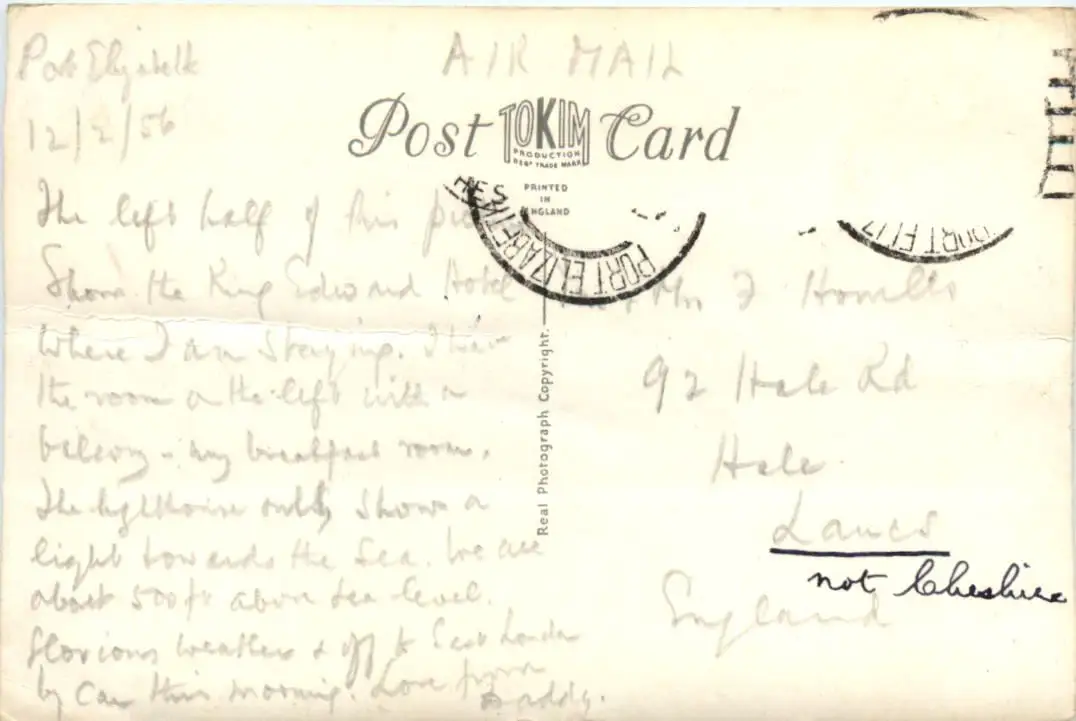 Port Elizabeth
12/2/56
The left half of this
Shows the King Edward Hotel
where I am staying. I have
the room on the left with a
balcony - my breakfast room.
The lighthouse only shows a
light towards the sea. We are
about 500 ft above sea-level.
Glorious weather & off to East London
by car this morning. Love from
Daddy.
AIR MAIL
Post TOKIM Card
PRODUCTION
REGD TRADE MARK
PRINTED
IN
ENGLAND
PORT ELIZABETH
PORT ELIZ
Real Photograph Copyright.
& Mrs J Howells
92 Hale Rd
Hale
Lancs
not Cheshire
England